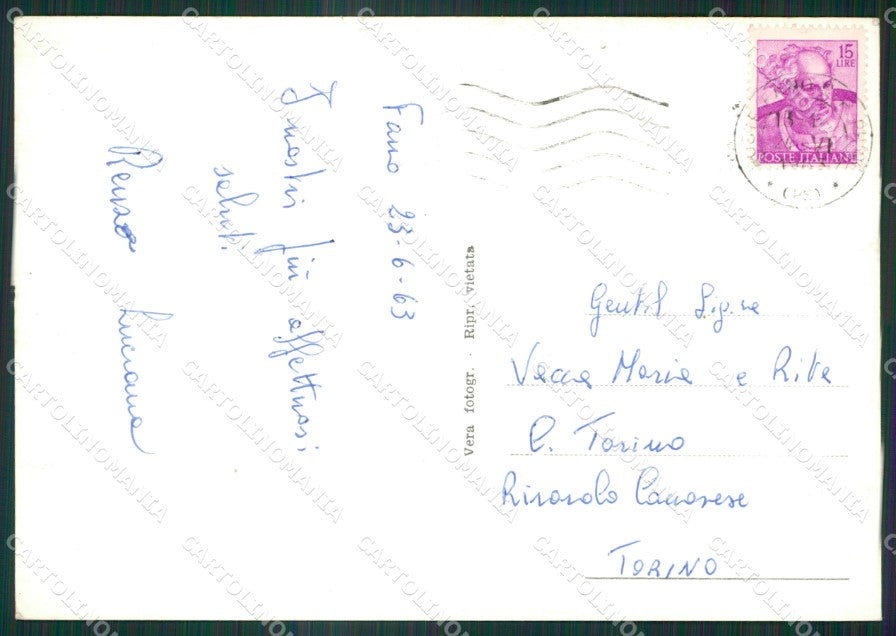 Fano 23-6-63
I nostri più affettuosi
saluti
Renzo Luciana
Vera fotogr. - Ripr. vietata
15
LIRE
POSTE ITALIANE
(PS)
Gentil Sig.ne
Vacca Maria e Rita
C. Torino
Rivarolo Canavese
TORINO
CARTOLINOMANIA